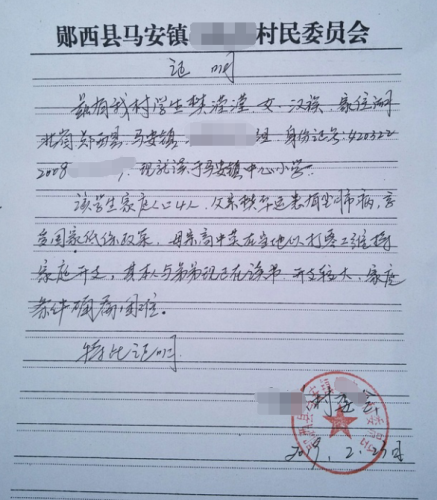 郧西县马安镇 村民委员会
证 明
兹有我村学生樊滢滢,女,汉族,家住湖
北省郧西县马安镇 组,身份证号:420322
2009 ,现就读于马安镇中心小学。
该学生家庭人口4人,父亲樊华远患有尘肺病,享
受国家低保政策,母亲高中英在当地以打零工维持
家庭开支,其本人与弟弟现正在读书,开支较大,家庭
条件确属困难。
特此证明
村委会
2019.2.23日